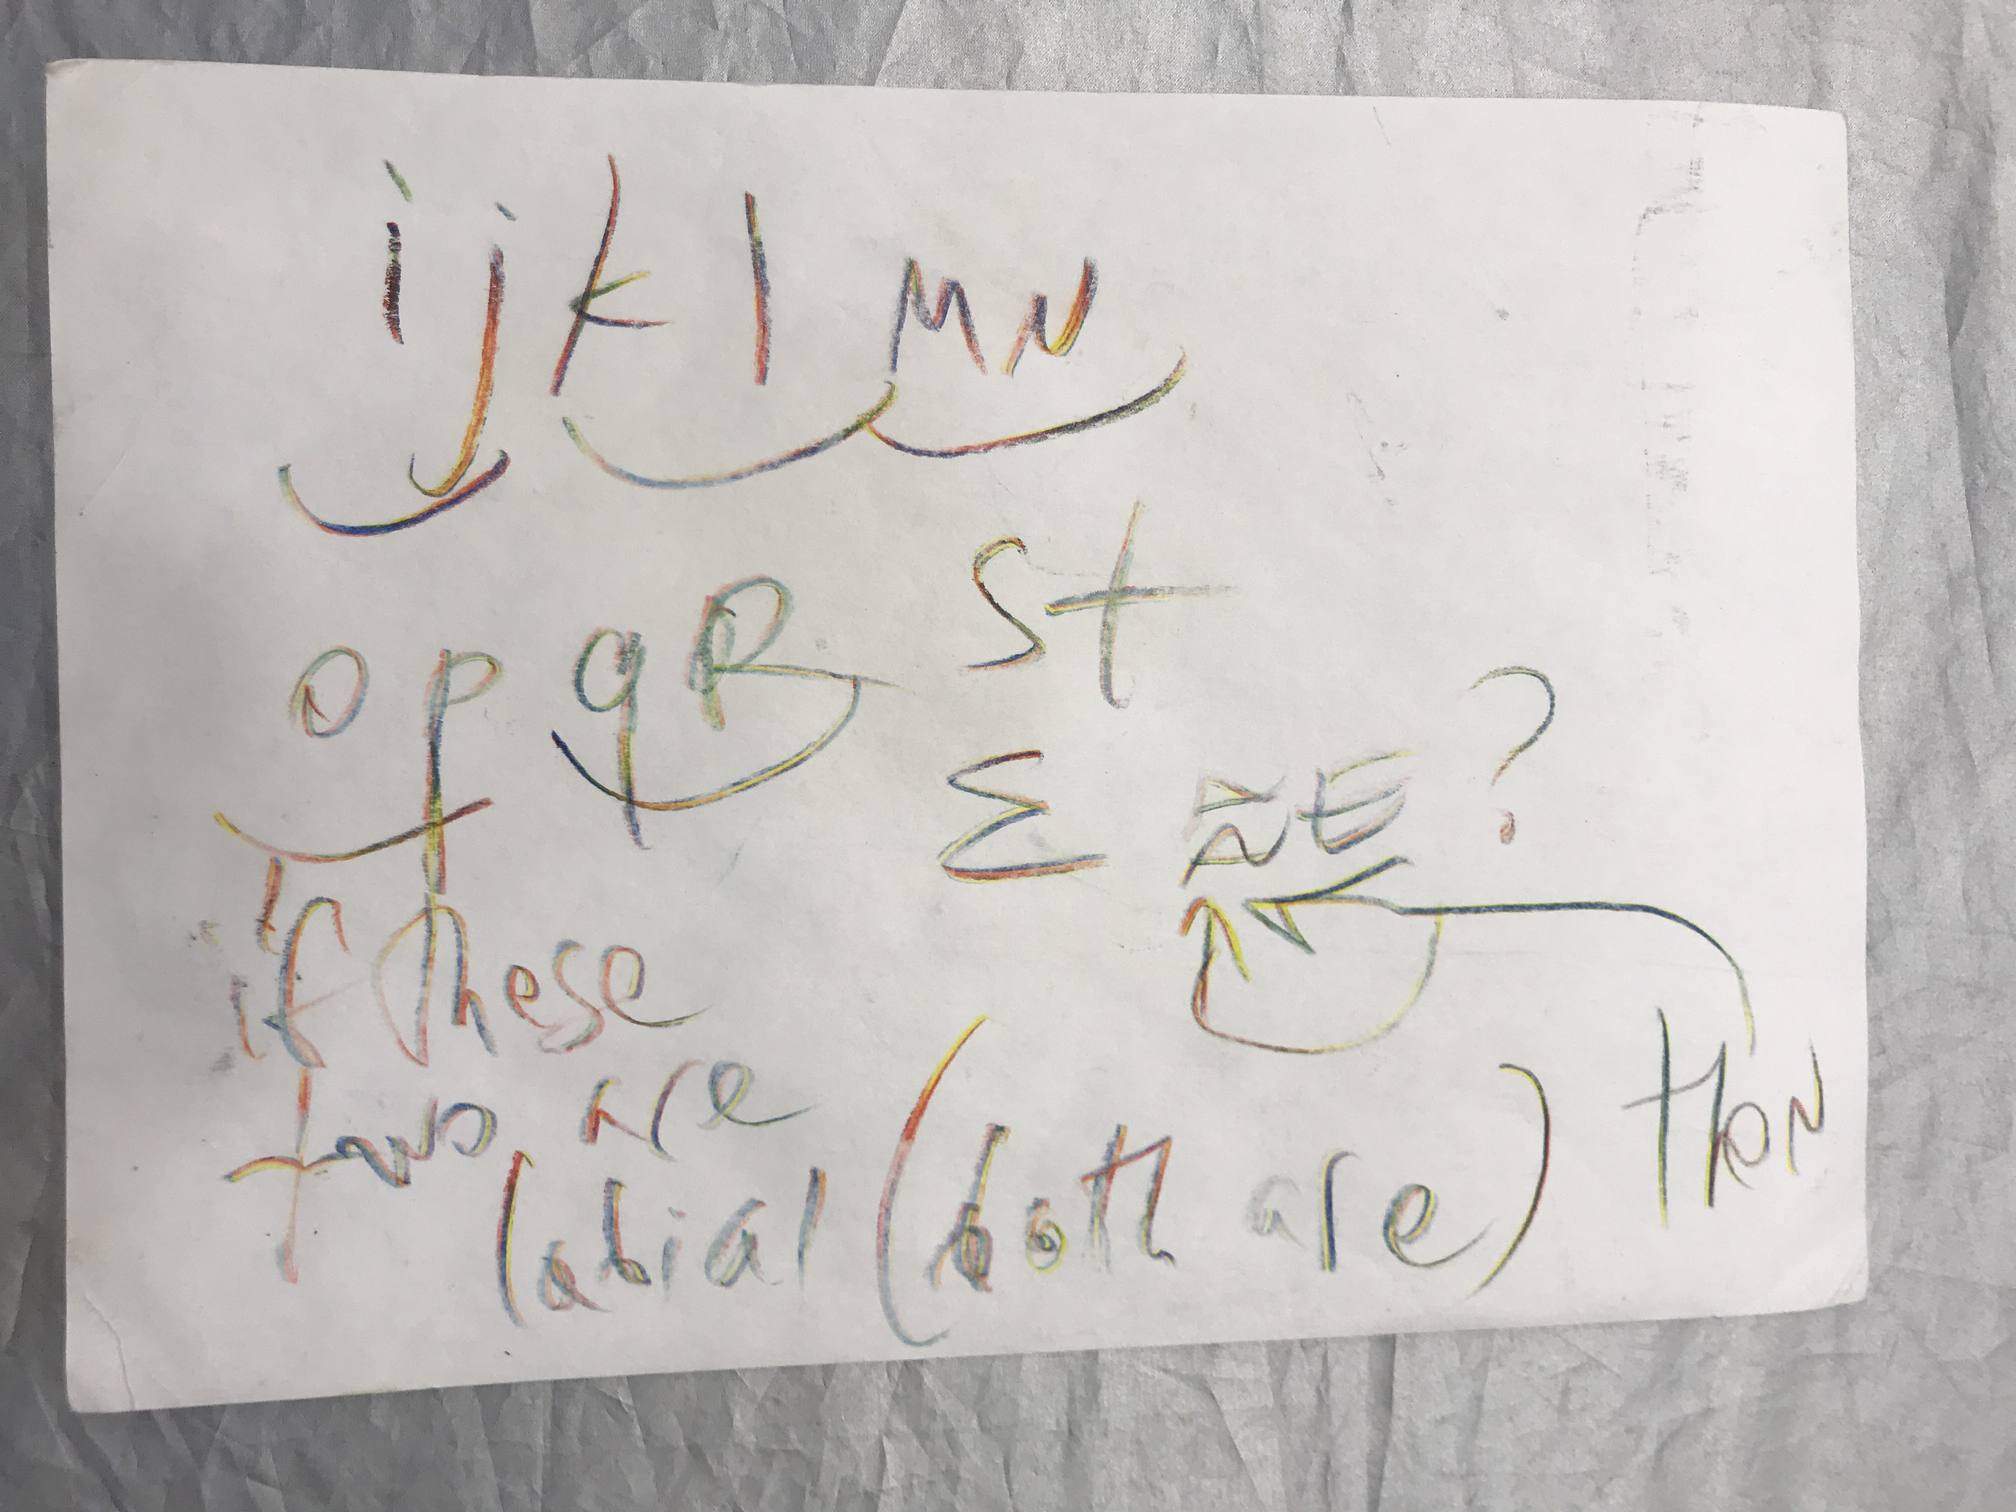 i j k l M N
o p q R st
Σ ÑE ?
if these
two are
labial (both are) then